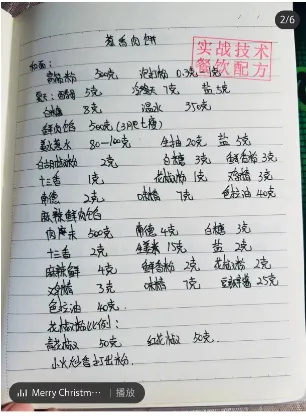 2/6
葱香肉饼
实战技术
餐饮配方
和面:
富强粉 500克 泡打粉 0.3克
夏天: 5克 冷水 7克 盐 5克
白糖 8克 温水 350克
鲜肉馅 500克 (3肥七瘦)
葱姜水 80—100克 生抽 20克 盐 5克
白胡椒粉 2克 白糖 3克 鲜香粉 3克
十三香 1克 花椒粉 1克 鸡精 3克
2克 味精 7克 色拉油 40克
麻辣鲜肉馅
肉 500克 4克 白糖 3克
十三香 2克 生姜末 15克 盐 2克
麻辣鲜 4克 鲜香粉 2克 花椒粉 2克
鸡精 3克 味精 7克 豆瓣酱 25克
色拉油 40克
花椒粉比例:
青花椒 50克 红花椒 50克
小火炒香打出粉
Merry Christm… | 播放